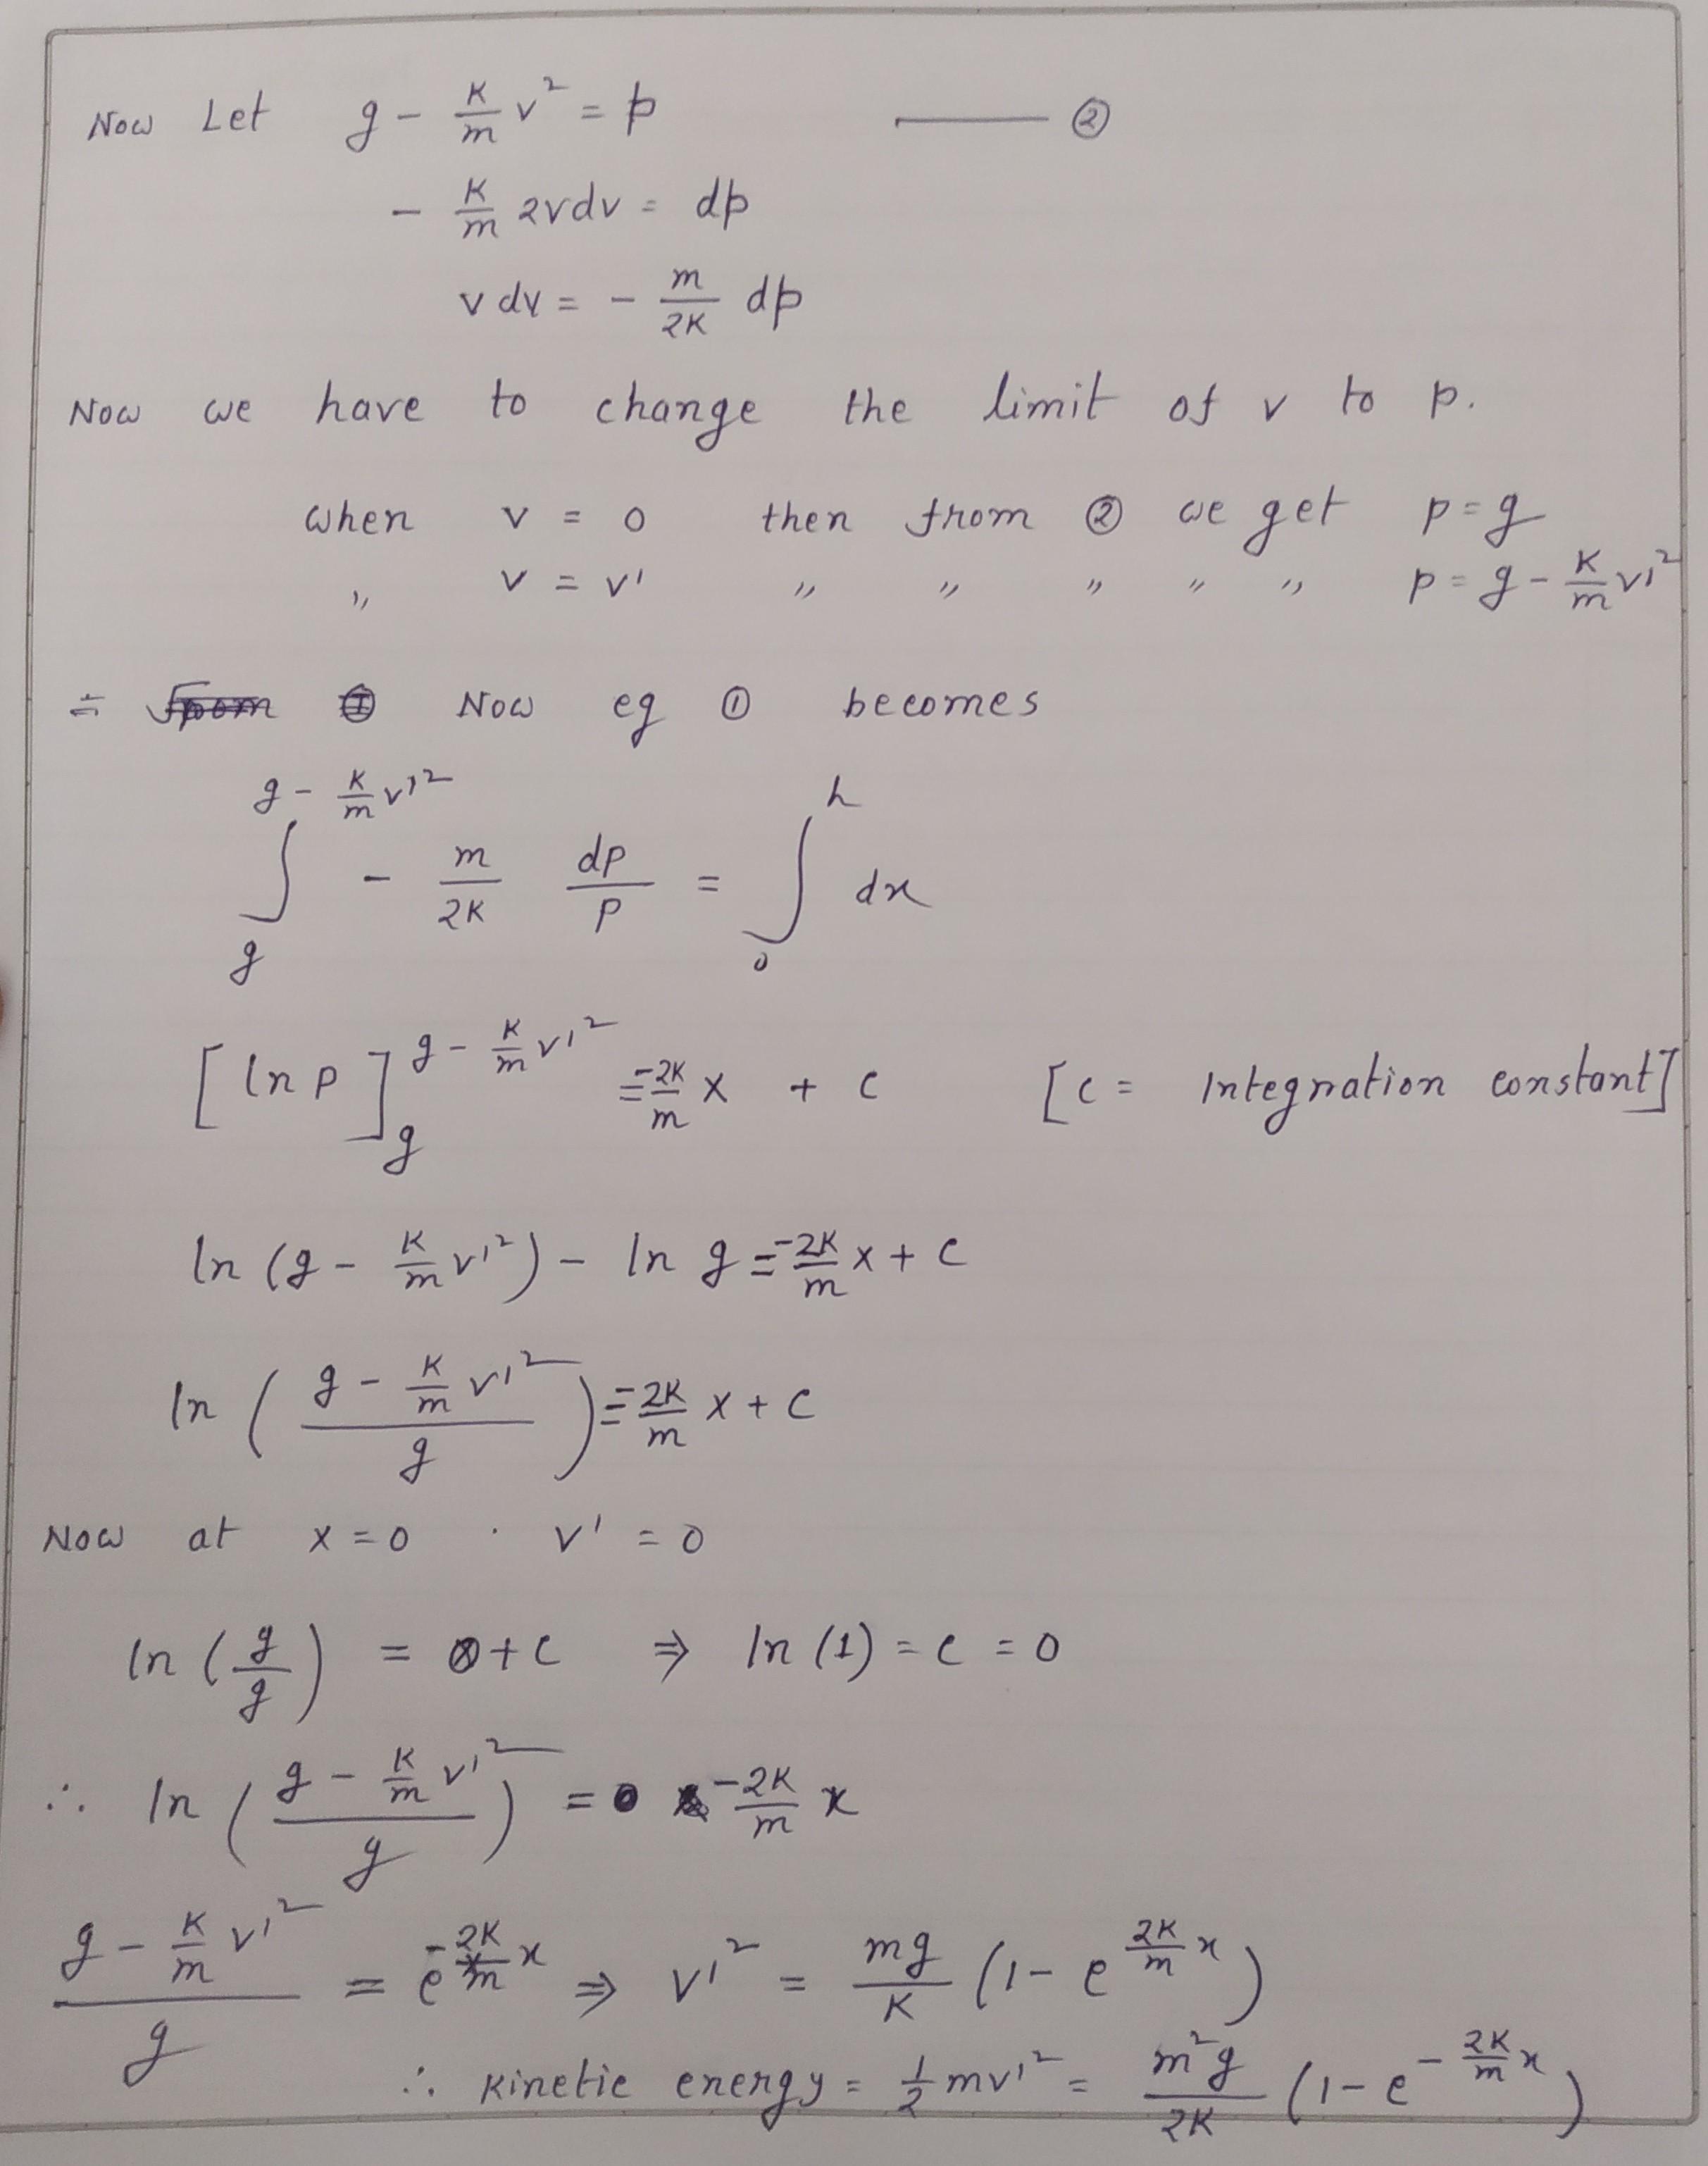 Now Let g - K/m v² = p —— ②
- K/m 2vdv = dp
v dv = - m/2K dp
Now we have to change the limit of v to p.
when v = 0 then from ② we get p = g
" v = v' " " " " " p = g - K/m v'²
= from ① Now eq ① becomes
∫_g^{g - K/m v'²} - m/2K dp/p = ∫_0^h dx
[ln p]_g^{g - K/m v'²} = -2K/m x + c [c = Integration constant]
ln (g - K/m v'²) - ln g = -2K/m x + c
ln ( (g - K/m v'²) / g ) = -2K/m x + c
Now at x = 0 . v' = 0
ln (g/g) = 0 + c ⇒ ln (1) = c = 0
∴ ln ( (g - K/m v'²) / g ) = -2K/m x
(g - K/m v'²) / g = e^{-2K/m x} ⇒ v'² = mg/K (1 - e^{2K/m x})
∴ Kinetic energy = 1/2 mv'² = m²g/2K (1 - e^{-2K/m x})